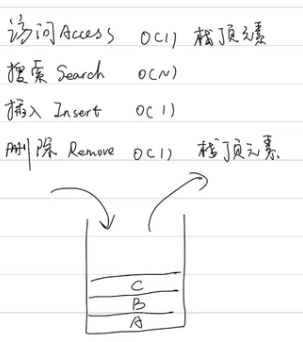 访问 Access O(1) 栈顶元素
搜索 Search O(N)
插入 Insert O(1)
删除 Remove O(1) 栈顶元素
C
B
A